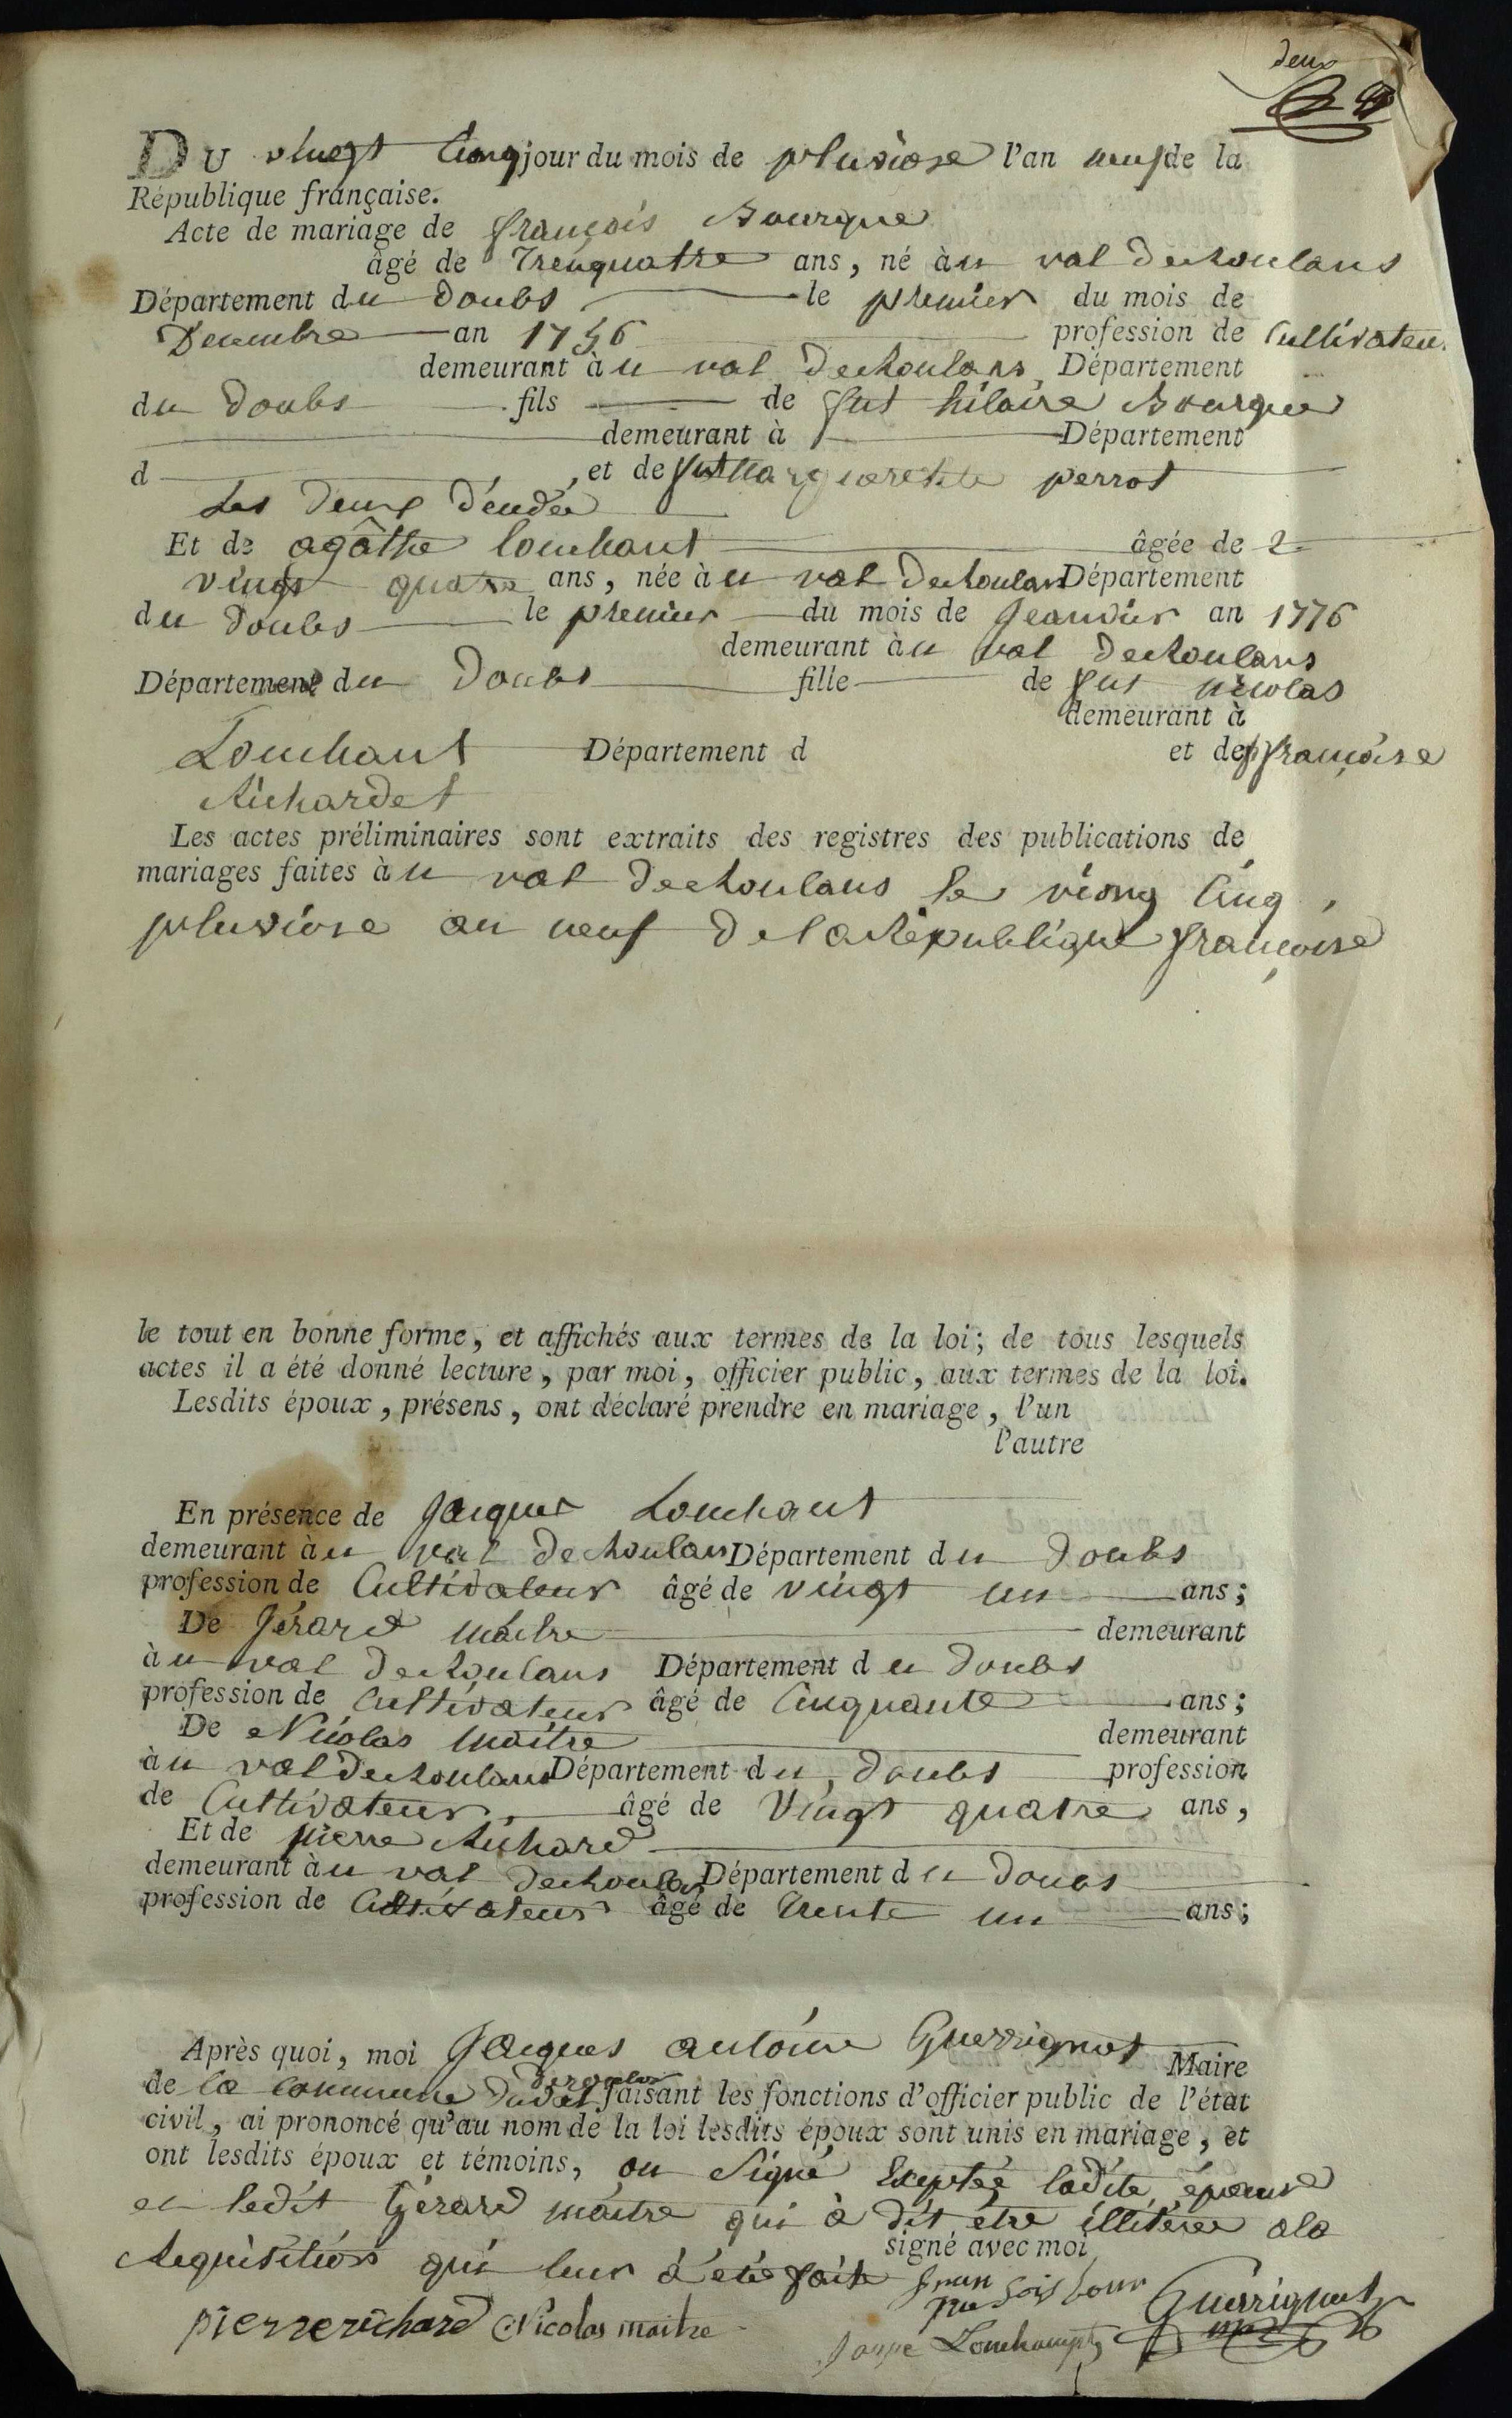 deux
DU vingt Cinq jour du mois de pluviose l'an neuf de la
République française.
Acte de mariage de françois Bourque
âgé de Trenquatre ans, né àu val deRoulans
Département du doubs le premier du mois de
Decembre an 1756 profession de Cultivateur
demeurant àu val deRoulans, Département
du doubs fils de fut hilaire Bourque
demeurant à Département
d , et de fut Margueretite perrot
Les deux déudée
Et de agâthe Lomhant âgée de 2
vingt quatre ans, née àu val deRoulans Département
du doubs le premier du mois de Jeanvier an 1776
demeurant àu val deRoulans
Département du Doubs fille de fut nicolas
demeurant à
Lomhant Département d et de françoise
Richardet
Les actes préliminaires sont extraits des registres des publications de
mariages faites àu val deRoulans le vieng Cinq
pluviose an neuf de la République françoise
le tout en bonne forme, et affichés aux termes de la loi; de tous lesquels
actes il a été donné lecture, par moi, officier public, aux termes de la loi.
Lesdits époux, présens, ont déclaré prendre en mariage, l'un
l'autre
En présence de Jacques Lomhant
demeurant àu val deRoulans Département du doubs
profession de Cultivateur âgé de vingt un ans;
De Gérard maitre demeurant
àu val deRoulans Département du doubs
profession de Cultivateur âgé de Cinquante ans;
De Nicolas maitre demeurant
àu val deRoulans Département du doubs profession
de Cultivateur âgé de Vingt quatre ans,
Et de pierre Richard
demeurant àu val deRoulans Département du doubs
profession de Cultivateur âgé de trente un ans;
Après quoi, moi Jacques antoine Guerrignot Maire
de la commune du val deRoulans faisant les fonctions d'officier public de l'état
civil, ai prononcé qu'au nom de la loi lesdits époux sont unis en mariage, et
ont lesdits époux et témoins, on signé Exeptée ladite épouse
et ledit Gérard maitre qui à dit être illitérée ala
Requisition qui leur à été faite signé avec moi
pierre richard Nicolas maitre Guerrignot
Lomchampt